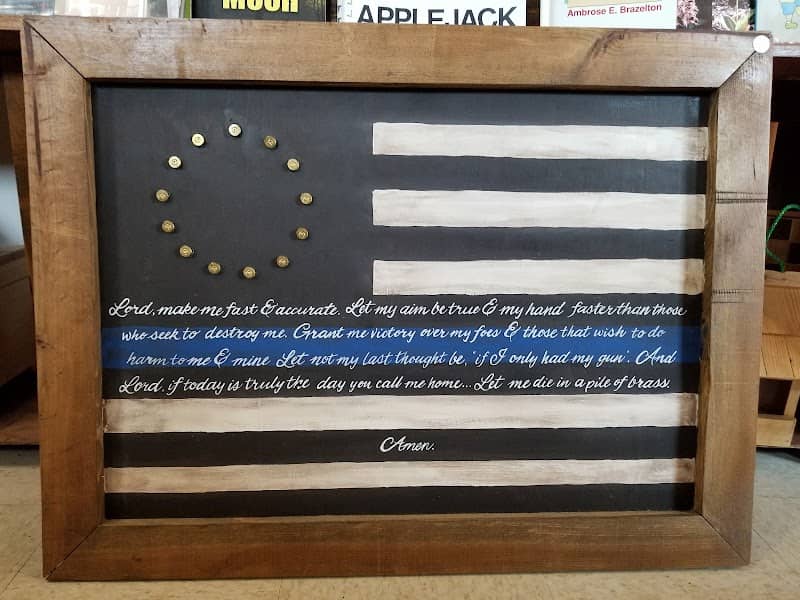 MOON
APPLEJACK
Ambrose E. Brazelton
Lord, make me fast & accurate. Let my aim be true & my hand faster than those
who seek to destroy me. Grant me victory over my foes & those that wish to do
harm to me & mine. Let not my last thought be, "if I only had my gun". And
Lord, if today is truly the day you call me home... Let me die in a pile of brass.
Amen.